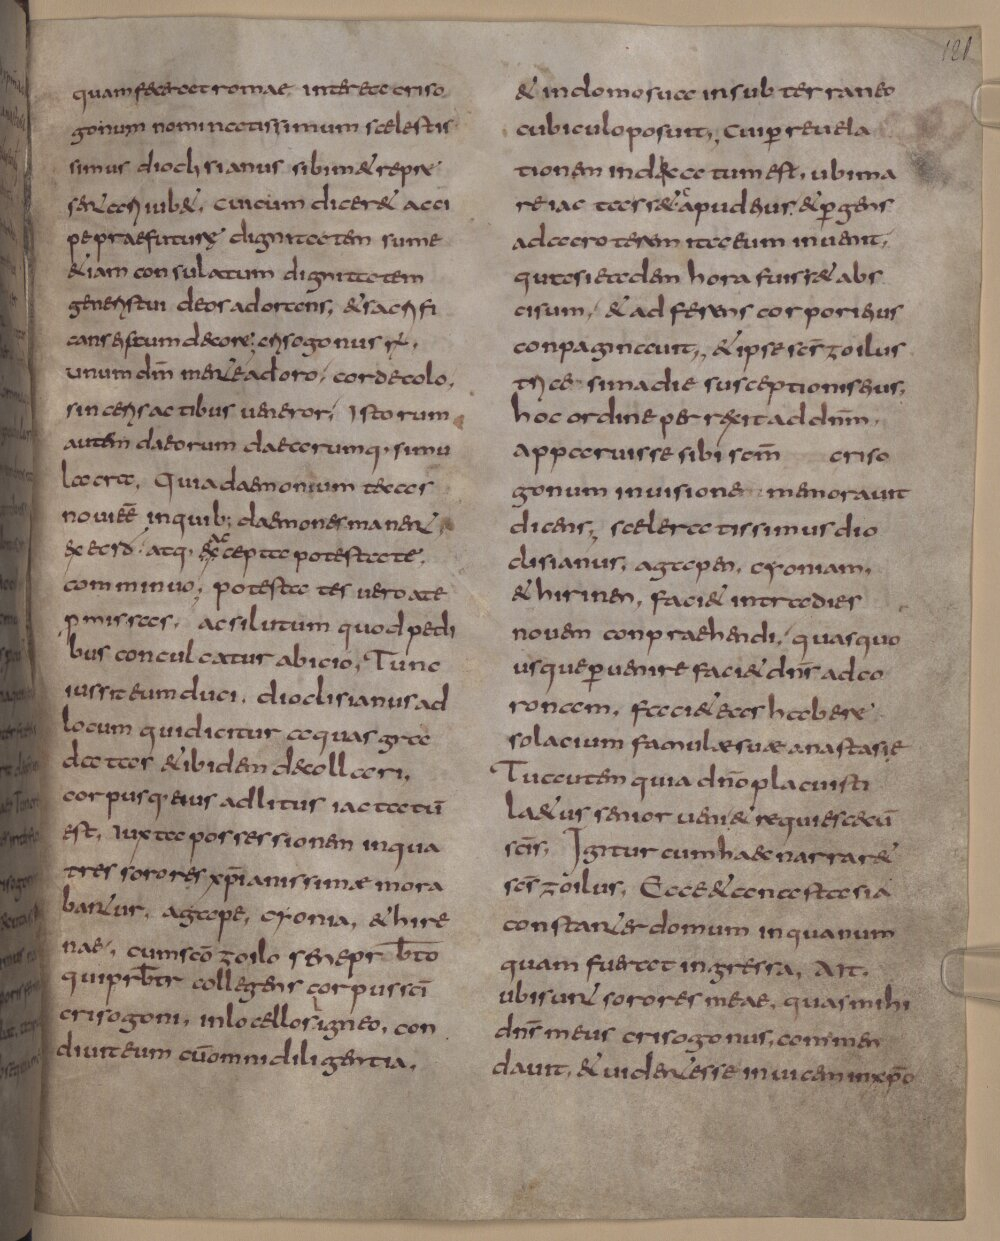 121
quam fecerat romae. interea criso
gonum nominatissimum scelestis
simus dioclisianus sibimet repre
sentari iubet. cui cum diceret acci
pe praefuturae dignitatem sume
etiam consulatum dignitatem
generis tui deos ador&ens, et sacrifi
cans es&um decore; crisogonus r̄,
unum dm̄ mente adoro, corde colo,
sinceris actibus veneror, Istorum
autem daeorum daecorumq· simu
lacra, Quia daemonium taccas
novi eē inquib; daemones manent,
atq, accepta potestate,
comminuo, potestates vero a te
pmissas, ac si lutum quod pedi
bus conculcatur abicio, Tunc
iussit eum duci, dioclisianus ad
locum qui dicitur aquas gra
datas et ibidem decollari,
corpusq· eius ad litus iactatū
est, Iuxta possessionem in qua
tres sorores xp̄ianissimae mora
bantur, agape, cyonia, et hire
nae, cum scō zoilo sene prbto
qui prbtr collegens corpus scī
crisogoni, in locello signeo, con
divit eum cū omni diligentia,
et in domo sua in subterraneo
cubiculo posuit, Cui p revela
tionem indicatum est, ubi ma
re iactasset apud eius et pgens
ad acroterem ita eum invenit,
quasi eadem hora fuisset abs
cisum, et adferens corporieius
conpaginavit, et ipse scs̄ zoilus
tricesima die susceptionis eius,
hoc ordine perrexit ad dnm̄,
apparuisse sibi scm̄ criso
gonum in visione memoravit
dicens, sceleratissimus dio
clisianus, agapen, cyoniam,
et hirinen, faciet intra dies
novem conpraehendi, quas quo
usque pvenire faciet dns̄ ad co
ronam, faciet eas habere
solacium famulae suae anastasie
Tu autem quia dno̅ placuisti
laetus senior veni et requiesce cū
scīs, Igitur cum haec narraret
scs̄ zoilus, Ecce et anastasia
constanter domum in qua num
quam fuerat ingressa, Ait,
ubi sunt sorores meae, quas mihi
dns̄ meus crisogonus, commen
davit, et vident esse invicem in xpō